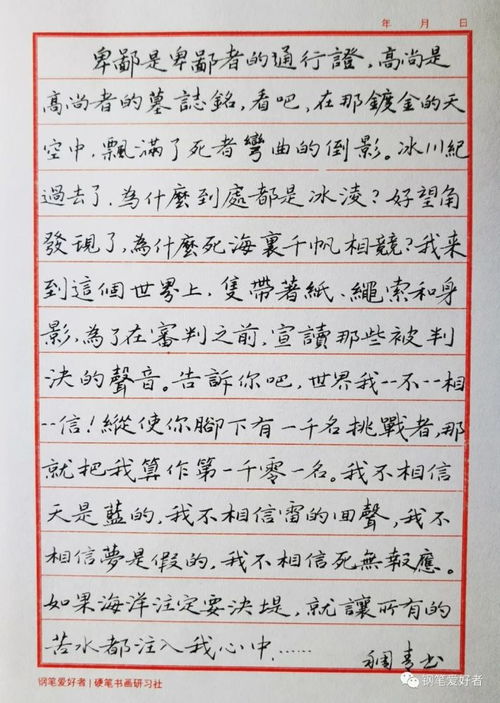 年 月 日
卑鄙是卑鄙者的通行證，高尚是
高尚者的墓誌銘，看吧，在那鍍金的天
空中，飄滿了死者彎曲的倒影。冰川紀
過去了，為什麼到處都是冰凌？好望角
發現了，為什麼死海裏千帆相競？我来
到這個世界上，隻帶著紙、繩索和身
影，為了在審判之前，宣讀那些被判
決的聲音。告訴你吧，世界我--不--相
--信！縱使你腳下有一千名挑戰者，那
就把我算作第一千零一名。我不相信
天是藍的，我不相信雷的回聲，我不
相信夢是假的，我不相信死無報應。
如果海洋注定要決堤，就讓所有的
苦水都注入我心中……
青书
钢笔爱好者 | 硬笔书画研习社
钢笔爱好者